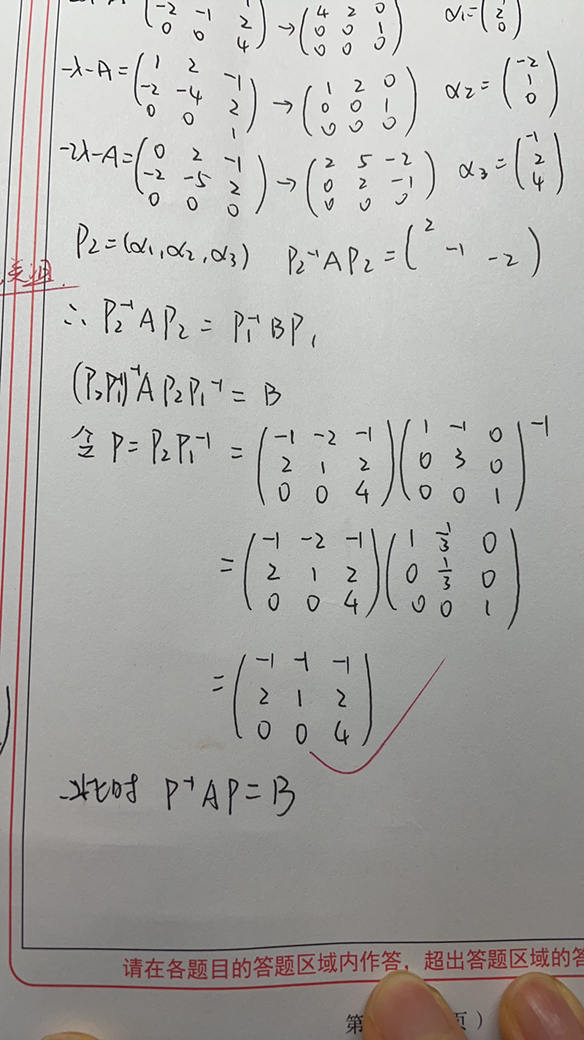 (-2 -1 2; 0 0 4) → (4 2 0; 0 0 1; 0 0 0) α₁=( 2; 0)
-λ-A=(1 2 -1; -2 -4 2; 0 0 1) → (1 2 0; 0 0 1; 0 0 0) α₂=(-2; 1; 0)
-2λ-A=(0 2 -1; -2 -5 2; 0 0 0) → (2 5 -2; 0 2 -1; 0 0 0) α₃=(-1; 2; 4)
P₂=(α₁,α₂,α₃) P₂⁻¹AP₂=(2 -1 -2)
∴ P₂⁻¹AP₂ = P₁⁻¹BP₁
(P₂P₁⁻¹)⁻¹AP₂P₁⁻¹ = B
令 P=P₂P₁⁻¹ = (-1 -2 -1; 2 1 2; 0 0 4)(1 -1 0; 0 3 0; 0 0 1)⁻¹
= (-1 -2 -1; 2 1 2; 0 0 4)(1 1/3 0; 0 1/3 0; 0 0 1)
= (-1 -1 -1; 2 1 2; 0 0 4)
此时 P⁻¹AP=B
请在各题目的答题区域内作答，超出答题区域的答
第 页）